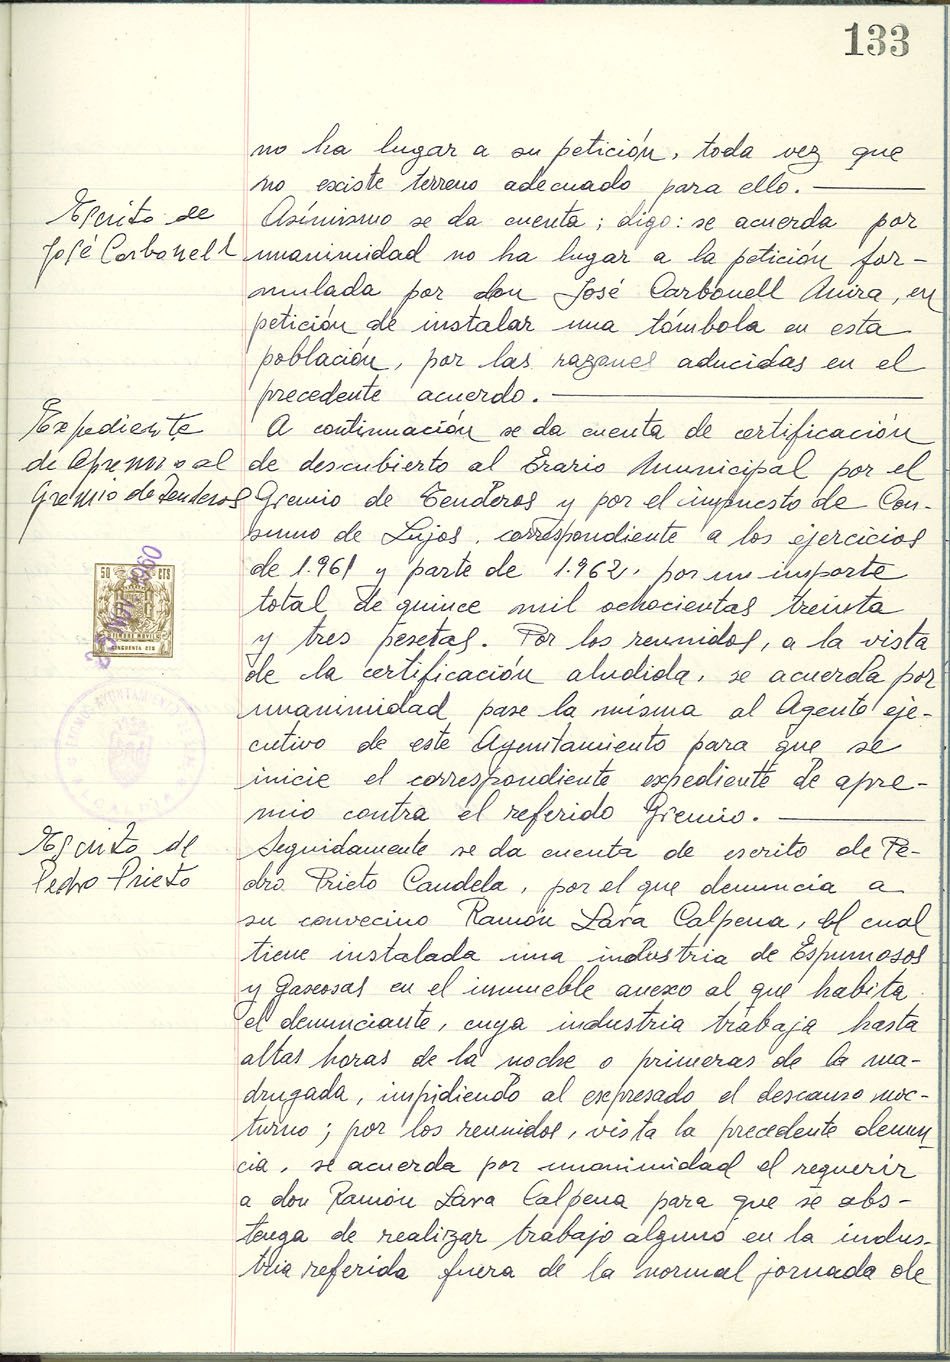 133
no ha lugar a su petición, toda vez que
no existe terreno adecuado para ello.
Escrito de
José Carbonell
Asímismo se da cuenta; digo: se acuerda por
unanimidad no ha lugar a la petición for-
mulada por don José Carbonell Mira, en
petición de instalar una tómbola en esta
población, por las razones aducidas en el
precedente acuerdo.
Expediente
de apremio al
Gremio de Tenderos
A continuación se da cuenta de certificación
de descubierto al Erario Municipal por el
Gremio de Tenderos y por el impuesto de Con-
sumo de Lujos, correspondiente a los ejercicios
de 1.961 y parte de 1.962, por un importe
total de quince mil ochocientas treinta
y tres pesetas. Por los reunidos, a la vista
de la certificación aludida, se acuerda por
unanimidad pase la misma al Agente eje-
cutivo de este Ayuntamiento para que se
inicie el correspondiente expediente de apre-
mio contra el referido Gremio.
50 CTS
TIMBRE MOVIL
CINCUENTA CTS
NOV 1960
Escrito de
Pedro Prieto
Seguidamente se da cuenta de escrito de Pe-
dro Prieto Candela, por el que denuncia a
su convecino Ramón Lara Calpena, el cual
tiene instalada una industria de Espumosos
y Gaseosas en el inmueble anexo al que habita
el denunciante, cuya industria trabaja hasta
altas horas de la noche o primeras de la ma-
drugada, impidiendo al expresado el descanso noc-
turno; por los reunidos, vista la precedente denun
cia, se acuerda por unanimidad el requerir
a don Ramón Lara Calpena para que se abs-
tenga de realizar trabajo alguno en la indus-
tria referida fuera de la normal jornada de